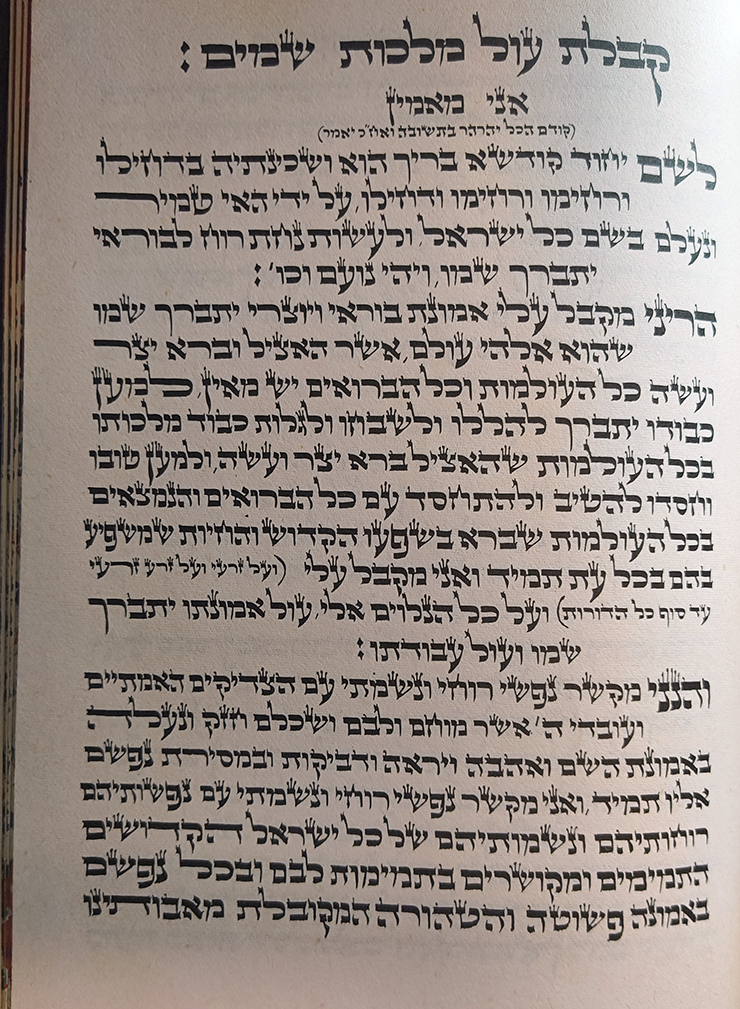 קבלת עול מלכות שמים :
אני מאמין
(קודם הכל יהרהר בתשובה ואח"כ יאמר)
לשם יחוד קודשא בריך הוא ושכינתיה בדחילו
ורחימו ורחימו ודחילו, על ידי האי טמיר
ונעלם בשם כל ישראל, ולעשות נחת רוח לבוראי
יתברך שמו, ויהי נועם וכו' :
הריני מקבל עלי אמונת בוראי ויוצרי יתברך שמו
שהוא אלהי עולם, אשר האציל וברא יצר
ועשה כל העולמות וכל הברואים יש מאין, כל למען
כבודו יתברך להללו ולשבחו ולגלות כבוד מלכותו
בכל העולמות שהאציל ברא יצר ועשה, ולמען טובו
וחסדו להטיב ולהתחסד עם כל הברואים והנמצאים
בכל העולמות שברא בשפעו הקדוש והחיות שמשפיע
בהם בכל עת תמיד ואני מקבל עלי (ועל זרעי ועל זרע זרעי
עד סוף כל הדורות) ועל כל הנלוים אלי, עול אמונתו יתברך
שמו ועול עבודתו :
והנני מקשר נפשי רוחי ונשמתי עם הצדיקים האמתיים
ועובדי ה' אשר מוחם ולבם ושכלם חזק ונעלה
באמונת השם ואהבה ויראה ודביקות ובמסירת נפשם
אליו תמיד, ואני מקשר נפשי רוחי ונשמתי עם נפשותיהם
רוחותיהם ונשמותיהם של כל ישראל הקדושים
התמימים ומקושרים בתמימות לבם ובכל נפשם
באמונה פשוטה והטהורה המקובלת מאבותינו